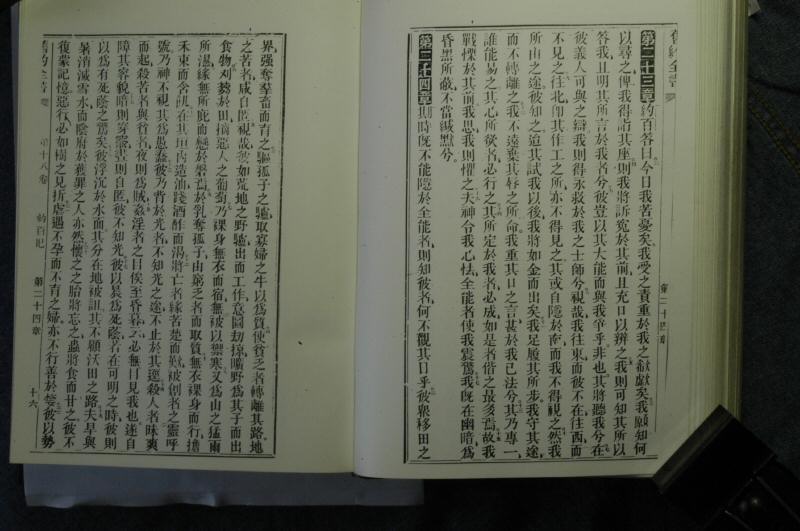 舊約全書
第二十三章 約百答曰今日我苦憂矣我受之責重於我之歔歔矣我願知何
以尋之俾我得詣其座則我將訴寃於其前且充口以辨之我則可知其所以
答我且明其所言於我者兮彼豈以其大能而與我爭乎非也其將聽我兮在
彼義人可與之辯我則得永救於我之士師兮視哉我往東而彼不在往西而
不見之往北卽其作工之所亦不得見之其或自隱於南而我不得視之然我
所由之途彼知之迨其試我以後我將如金而出矣我足履其所步我守其途
而不轉離之我不遠棄其脣之所命我重其口之言甚於我已法兮其乃專一
誰能易之其心所欲者必行之其所定於我者必成如是者偕之最多焉故我
戰慄於其前我思我則懼之夫神令我心怯全能者使我震驚我旣在幽暗爲
昏黑所蔽不當緘默兮
第二十四章 期時旣不能隱於全能者則知彼者何不觀其日乎彼輩移田之
第二十四章
界强奪羣畜而育之驅孤子之驢取寡婦之牛以爲質使貧乏者轉離其路地
之苦者咸自匿視哉彼如荒地之野驢出而工作意圖刼掠曠野爲其子而出
食物刈芻於田摘惡人之葡萄乃裸身無衣而宿無被以禦寒又爲山之猛雨
所濕緣無所庇而戀於磐焉於乳奪孤子由窮乏者而取質無衣裸身而行擔
禾束而含飢在其垣內造油踐酒醡而渴將亡者緣苦楚而歎被創者之靈呼
號乃神不視其爲愚蠢彼乃背於光者不知光之途不止於其逕殺人者昧爽
而起殺苦者與貧者夜則爲賊姦淫者之目俟至昏暮云必無目見我也遂自
障其容貌暗則穿家晝則自匿彼不知光彼以晨爲死蔭若在可明之時彼則
以爲有死蔭之驚矣彼浮沉於水面其分在地被詛其不顧沃田之路夫旱與
暑消滅雪水而陰府於獲罪之人亦然懷之之胎將忘之蟲將食而甘之彼不
復蒙記憶惡行必如樹之見折虐遇不孕而不育之婦亦不行善於嫠彼以勢
舊約全書
第十八卷
約百記
第二十四章
十六